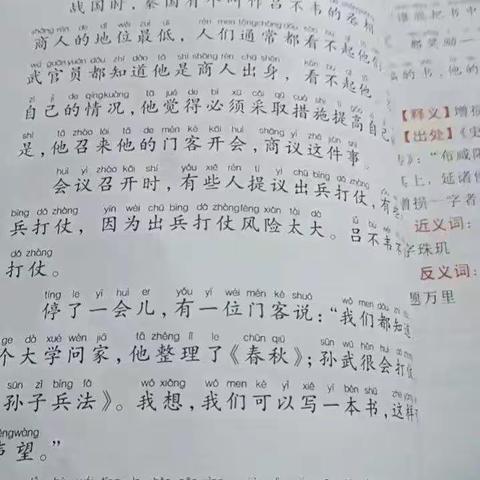 战国时，秦国有个叫吕不韦的
商人的地位最低，人们通常都看不起他们
武官员都知道他是商人出身，看不起他
自己的情况，他觉得必须采取措施提高自己
是，他召来他的门客开会，商议这件事。
会议召开时，有些人提议出兵打仗，有些
兵打仗，因为出兵打仗风险太大。吕不韦不
打仗。
停了一会儿，有一位门客说：“我们都知道
个大学问家，他整理了《春秋》；孙武很会打仗
孙子兵法》。我想，我们可以写一本书，这样
声望。”
谁能把书中
那奖励一
的书，他的
【释义】增损
【出处】《史
传》：“布咸阳
其上，延诸侯
增损一字者
近义词：
字珠玑
反义词：
万里